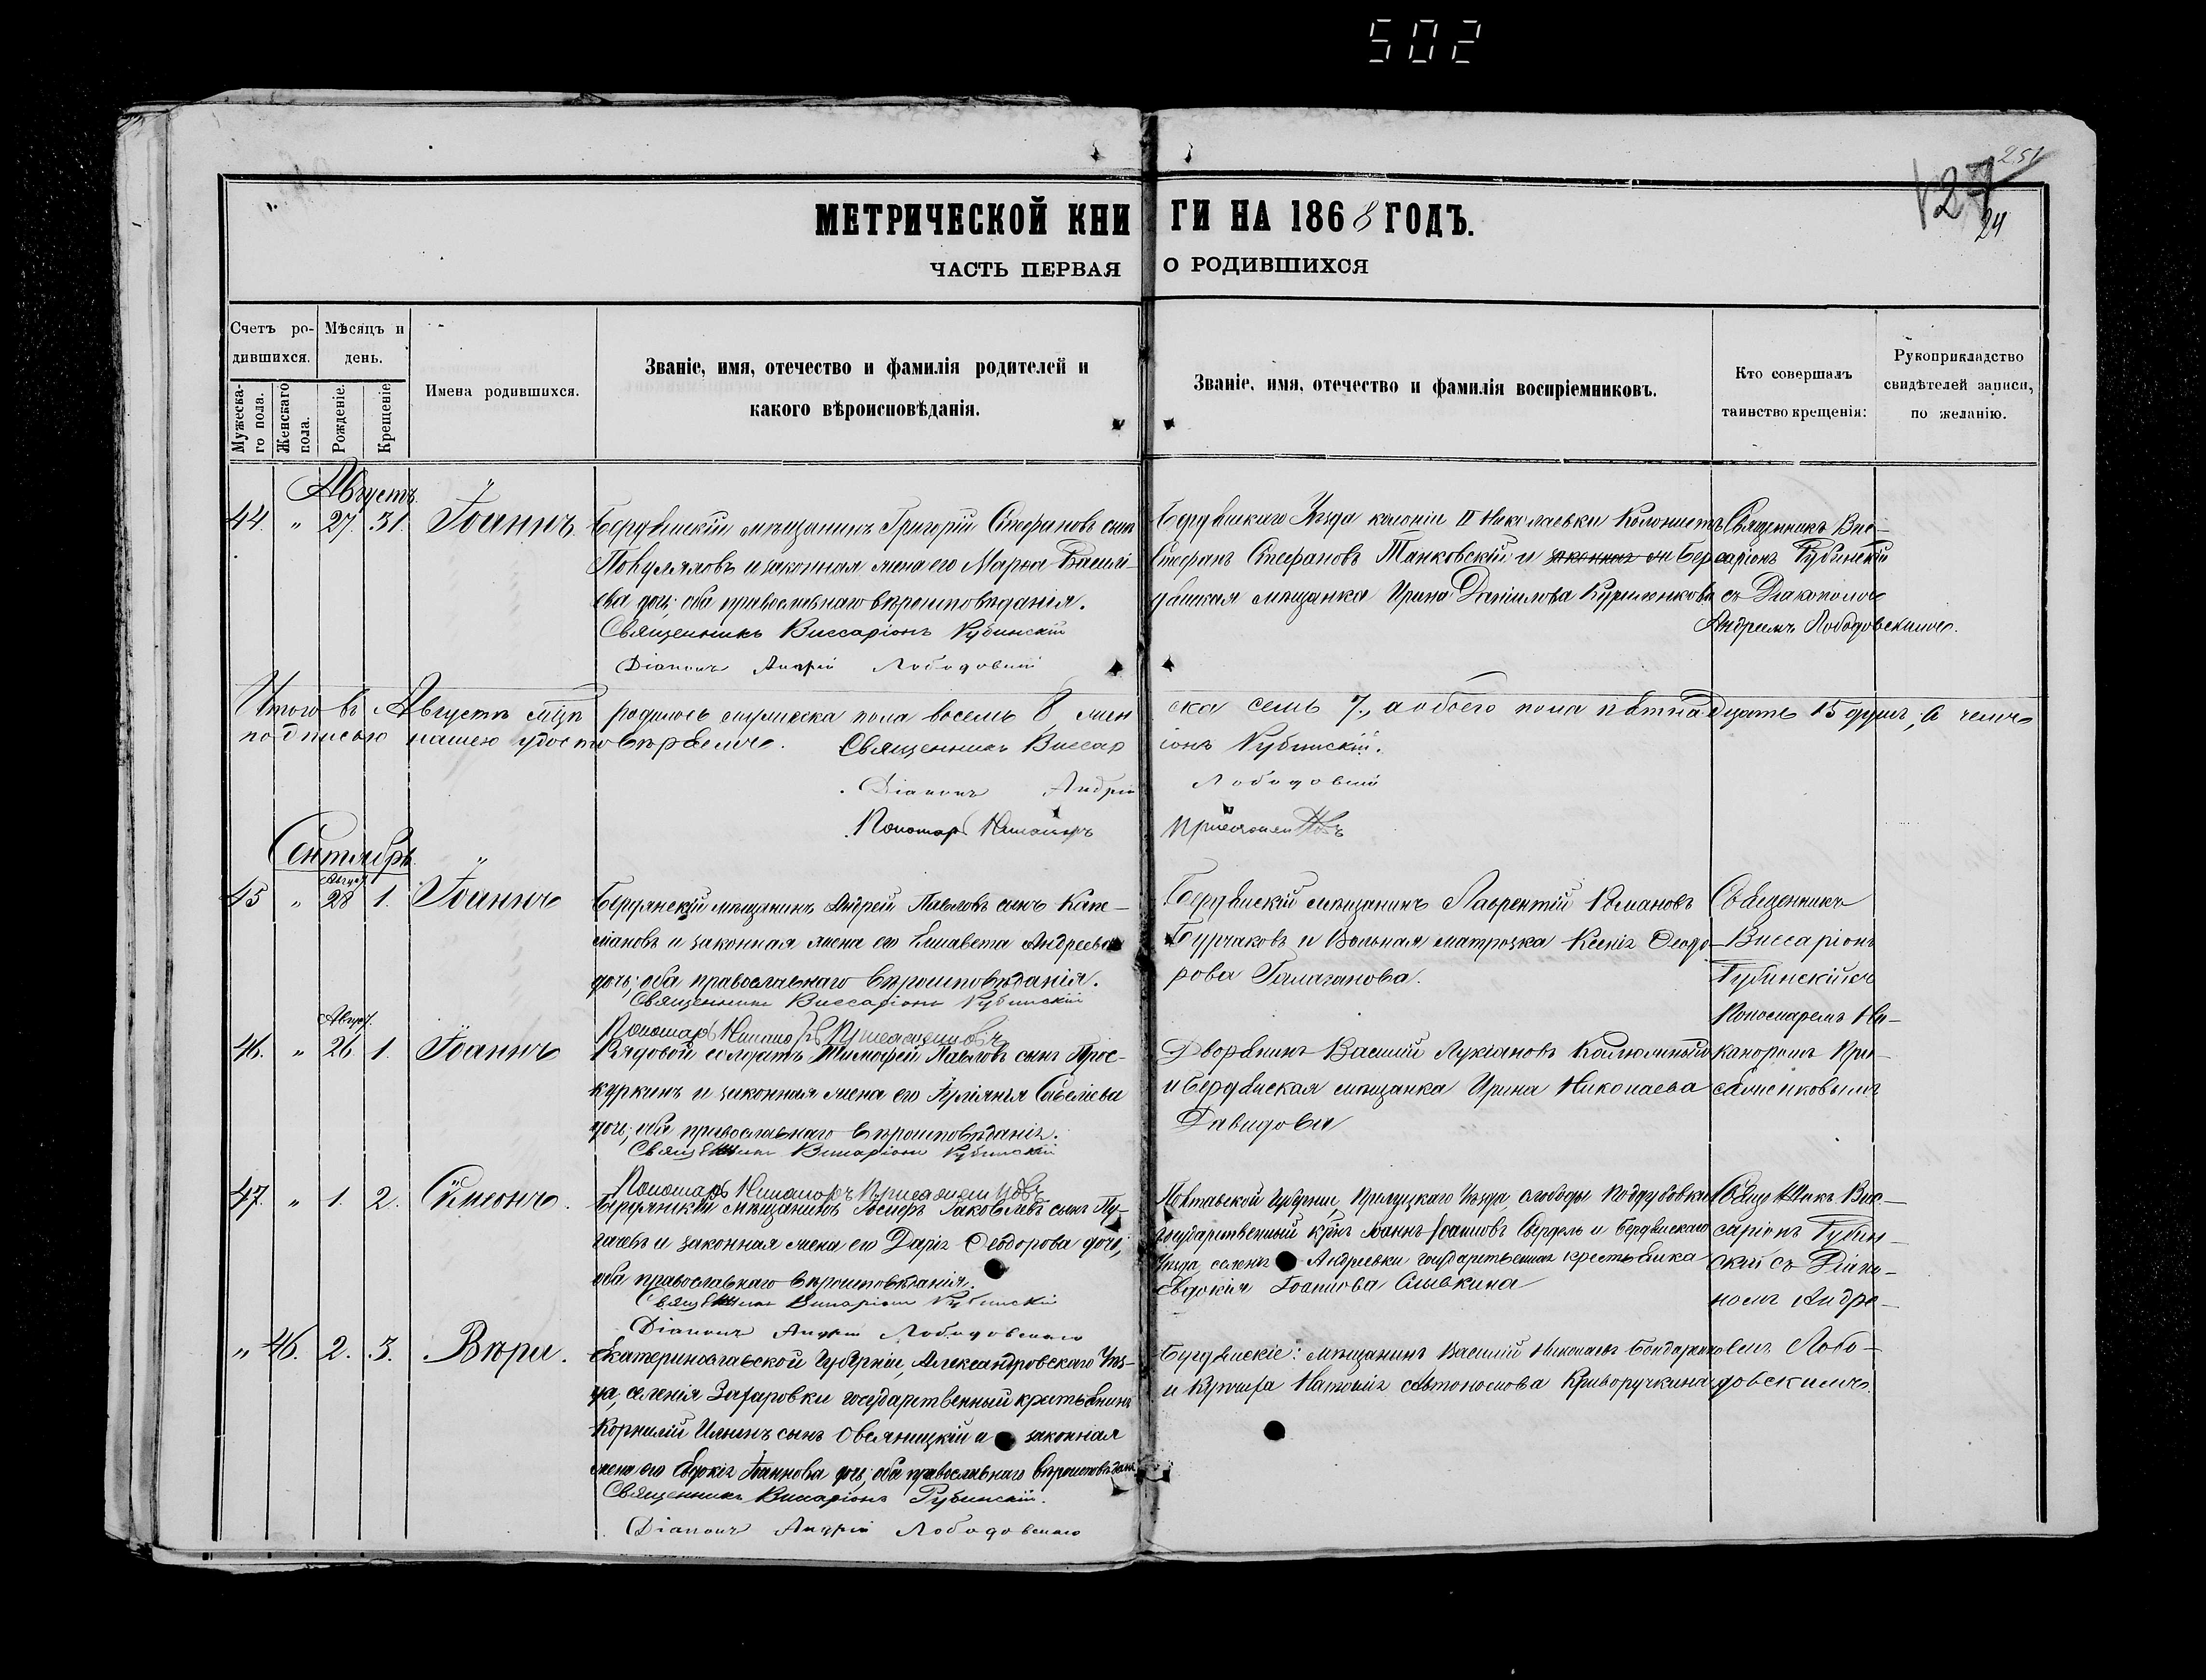 502
251
27
24
МЕТРИЧЕСКОЙ КНИГИ НА 1868 ГОДЪ.
ЧАСТЬ ПЕРВАЯ О РОДИВШИХСЯ
Счетъ родившихся.
Мужескаго пола.
Женскаго пола.
Мѣсяцъ и день.
Рожденіе.
Крещеніе
Имена родившихся.
Званіе, имя, отечество и фамилія родителей и
какого вѣроисповѣданія.
Званіе, имя, отечество и фамилія воспріемниковъ.
Кто совершалъ
таинство крещенія:
Рукоприкладство
свидѣтелей записи,
по желанію.
Августъ
44. " 27. 31. Іоаннъ.
Бердянскій мѣщанинъ Григорій Стефановъ сынъ
и законная жена его Марѳа Василі-
ева дочь; оба православнаго вѣроисповѣданія.
Священникъ Виссаріонъ Рубинскій
Діаконъ Андрій Лободовскій
Бердянскаго Уѣзда колоніи II Николаевки Колонистъ
Стефанъ Стефановъ Танковскій и законная Бер-
дянская мѣщанка Ирина Даніилова Куриленкова
Священникъ Вис-
саріонъ Рубинскій
съ Діакономъ
Андреемъ Лободовскимъ.
Итого въ Августѣ мцѣ родилось мужеска пола восемь 8, женска семь 7, а обоего пола пятнадцать 15 душъ, въ чемъ
подписью нашею удостовѣряемъ. Священникъ Виссаріонъ Рубинскій.
Діаконъ Андрій Лободовскій
Пономарь Никаноръ
Сентябрь
45 " Август. 28 1. Іоаннъ
Бердянскій мѣщанинъ Андрей Павловъ сынъ
и законная жена его Елисавета Андреева
дочь; оба православнаго вѣроисповѣданія.
Священникъ Виссаріонъ Рубинскій
Пономарь Никаноръ
Бердянскій мѣщанинъ Лаврентій Романовъ
Бурчаковъ и Вольная матроска Ксенія Ѳеодо-
рова
Священникъ
Виссаріонъ
Рубинскій съ
Пономаремъ Ни-
каноромъ
46. " Август. 26 1. Іоаннъ
Рядовой солдатъ Тимофей Павловъ сынъ Прос-
куркинъ и законная жена его Іуліанія Савеліева
дочь; оба православнаго вѣроисповѣданія.
Священникъ Виссаріонъ Рубинскій
Пономарь Никаноръ
Дворянинъ Василій Лукіановъ
и Бердянская мѣщанка Ирина Николаева
Давидова
47. " 1. 2. Сѵмеонъ.
Бердянскій мѣщанинъ Іосифъ Іаковлевъ сынъ Пу-
гачевъ и законная жена его Дарія Ѳеодорова дочь;
оба православнаго вѣроисповѣданія.
Священникъ Виссаріонъ Рубинскій
Діаконъ Андрій Лободовскій
Полтавской Губерніи, Прилуцкаго Уѣзда, слободы
государственный Іоаннъ Іоанновъ и Бердянскаго
Уѣзда, селенія Андреевки государственная крестьянка
Евдокія Іоаннова Сливкина
Священникъ Вис-
саріонъ Рубин-
скій съ Діако-
номъ Андре-
емъ Лобо-
довскимъ.
" 46. 2. 3. Вѣра.
Екатеринославской Губерніи, Александровскаго Уѣз-
да, селенія Захаровки государственный крестьянинъ
Корнилій Ильинъ сынъ Овсяницкій и законная
жена его Евдокія Іоаннова дочь; оба православнаго вѣроисповѣданія
Священникъ Виссаріонъ Рубинскій.
Діаконъ Андрій Лободовскій
Бердянскіе: мѣщанинъ Василій Николаевъ Бондаренко
и Наталія Автономова Криворучкина